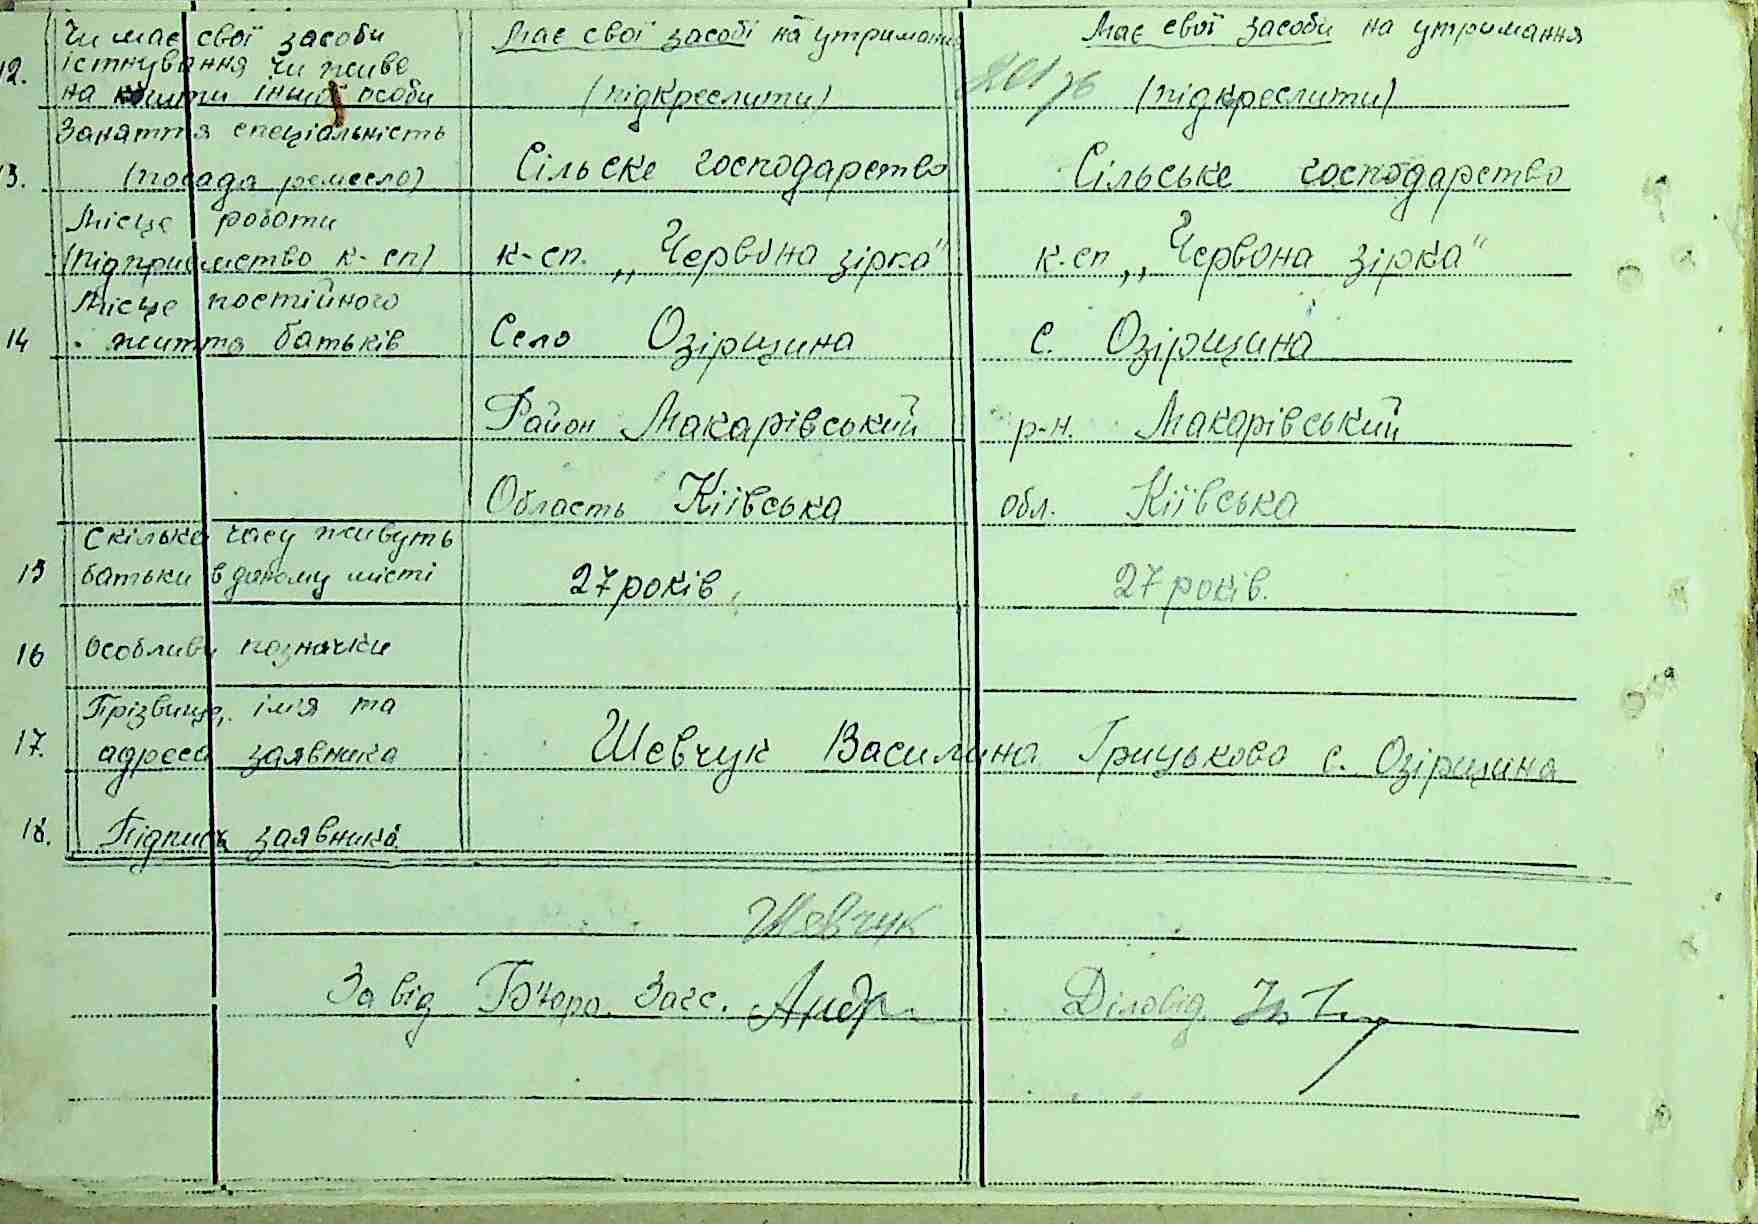 Чи має свої засоби
існування чи живе
12.
на кошти іншої особи
Має свої засобі на утриман
(підкреслити)
Має свої засоби на утримання
(підкреслити)
Заняття спеціальність
13.
(посада ремесло)
Сільске господарство
Сільське господарство
Місце роботи
(підприємство к-сп)
к-сп. „Червона зірка"
к-сп „Червона зірка"
Місце постійного
14
життя батьків
Село Озірщина
с. Озірщина
Район Макарівський
р-н. Макарівський
Область Київська
обл. Київська
Скільки часу живуть
15
батьки в даному місті
27 років
27 років.
16
Особливі позначки
Прізвище, імʼя та
17.
адреса заявника
Шевчук Василина Грицькова с. Озірщина
18.
Підпись заявника
Шевчук
Завід Б'юро. Загс.
Діловід.